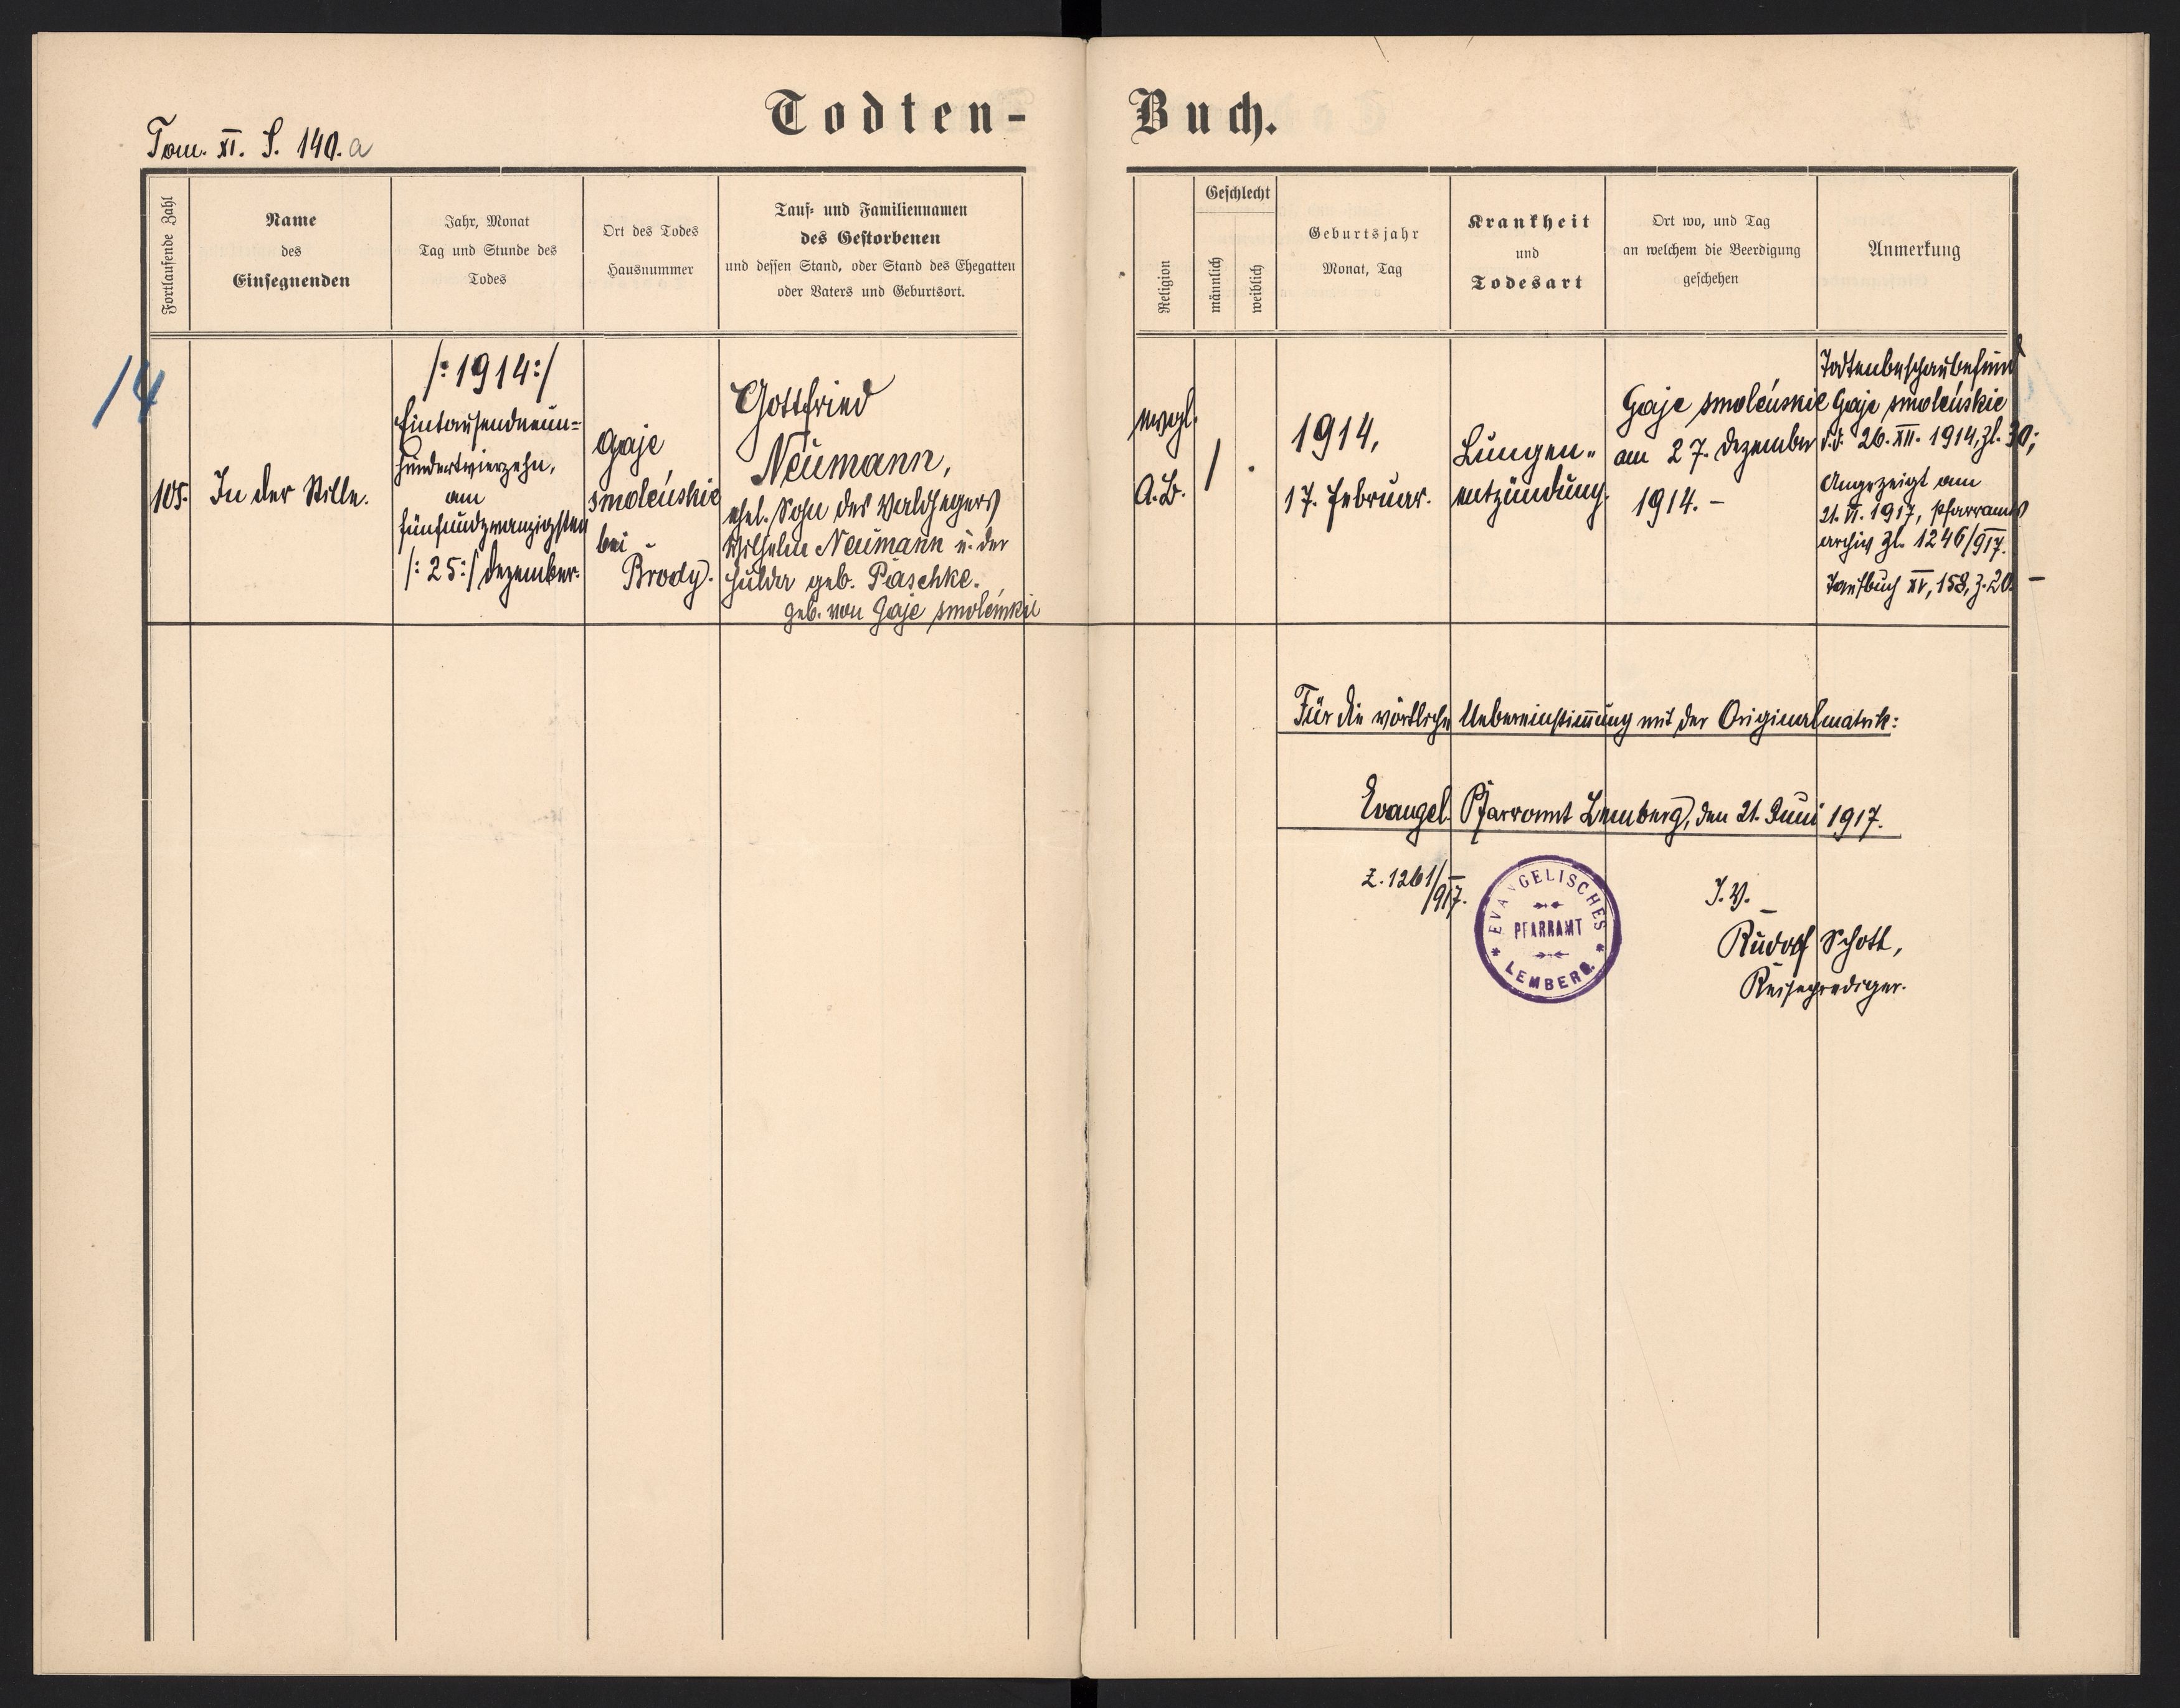 Todten-Buch.
Tom. XI. S. 140. a
Fortlaufende Zahl
Name
des
Einsegnenden
Jahr, Monat
Tag und Stunde des
Todes
Ort des Todes
Hausnummer
Tauf- und Familiennamen
des Gestorbenen
und dessen Stand, oder Stand des Ehegatten
oder Vaters und Geburtsort.
Religion
Geschlecht
männlich
weiblich
Geburtsjahr
Monat, Tag
Krankheit
und
Todesart
Ort wo, und Tag
an welchem die Beerdigung
geschehen
Anmerkung
14
105.
In der Stille.
/:1914:/
Eintausendneun=
hundertvierzehn,
am
fünfundzwanzigsten
/:25:/ Dezember.
Gaje
smoleńskie
bei
Brody.
Gottfried
Neumann,
ehel. Sohn des Waldhegers
Wilhelm Neumann u. der
Hulda geb. Paschke.
geb. von Gaje smoleńskie
evgl.
A.B.
/
.
1914,
17. Februar.
Lungen„
entzündung.
Gaje smoleńskie
am 27. Dezember
1914. –
Todtenbeschaubefund
Gaje smoleńskie
d.d. 26. XII. 1914, Zl. 30;
Angezeigt am
21. VI. 1917, Pfarramts
archiv Zl. 1246/917.
Taufbuch XV, 158, Z. 20. –
Für die wörtliche Uebereinstimmung mit der Originalmatrik:
Evangel. Pfarramt Lemberg, den 21. Juni 1917.
Z. 1261/917.
EVANGELISCHES
PFARRAMT
LEMBERG.
I. V.
Rudolf Schott,
Reiseprediger.